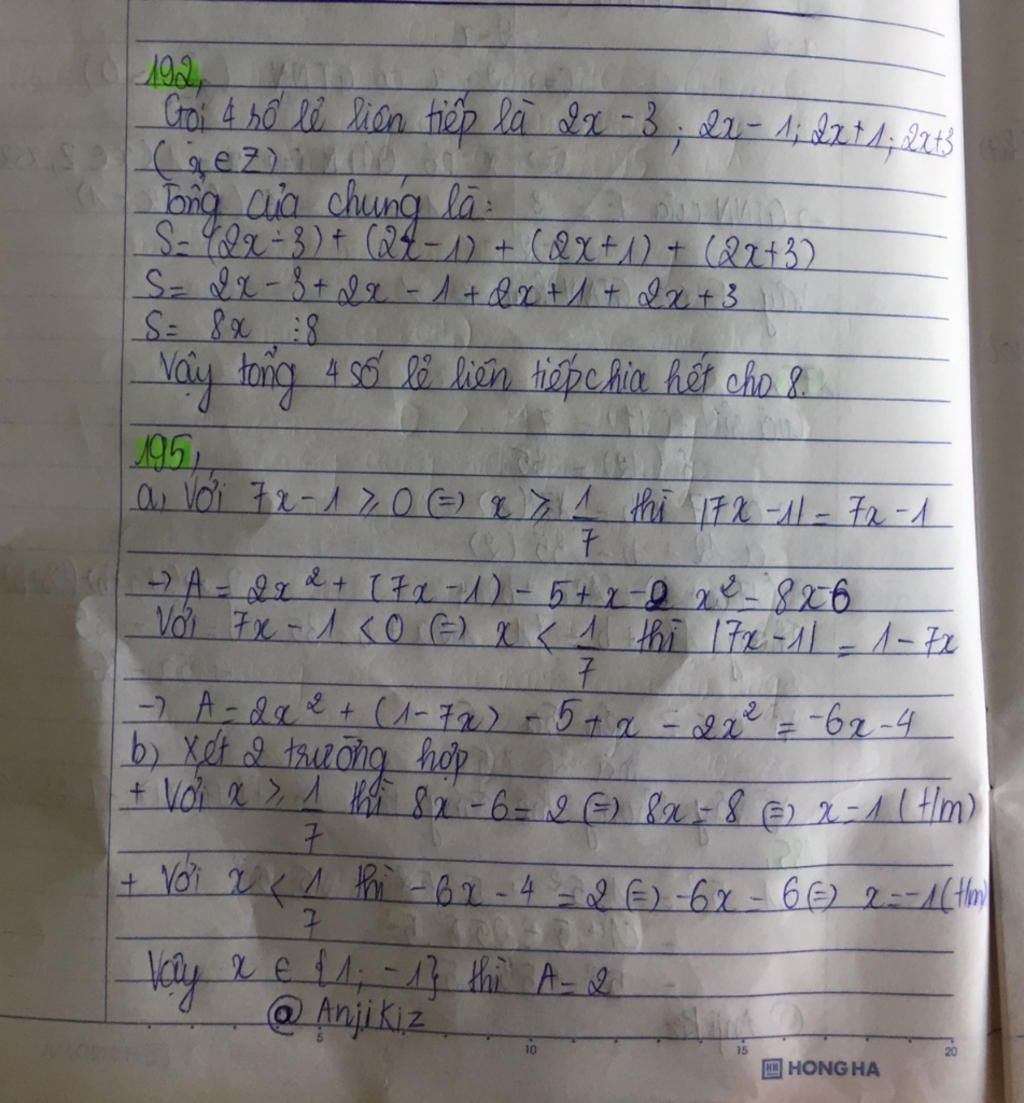 192,
Gọi 4 số lẻ liên tiếp là 2x - 3 ; 2x - 1 ; 2x + 1 ; 2x+3
( x ∈ Z)
Tổng của chúng là:
S = (2x - 3) + (2x - 1) + (2x + 1) + (2x+3)
S = 2x - 3 + 2x - 1 + 2x + 1 + 2x + 3
S = 8x ⋮ 8
Vậy tổng 4 số lẻ liên tiếp chia hết cho 8.
195,
a, Với 7x - 1 ≥ 0 (=) x ≥ 1/7 thì |7x - 1| = 7x - 1
-> A = 2x² + (7x - 1) - 5 + x - 2x² = 8x - 6
Với 7x - 1 < 0 (=) x < 1/7 thì |7x - 1| = 1 - 7x
-> A = 2x² + (1 - 7x) - 5 + x - 2x² = -6x - 4
b) Xét 2 trường hợp
+ Với x ≥ 1/7 thì 8x - 6 = 2 (=) 8x = 8 (=) x = 1 (t/m)
+ Với x < 1/7 thì - 6x - 4 = 2 (=) -6x = 6 (=) x = -1 (t/m)
Vậy x ∈ {1; -1} thì A = 2
@ Anjikiz
5 10 15 20
HH HONG HA